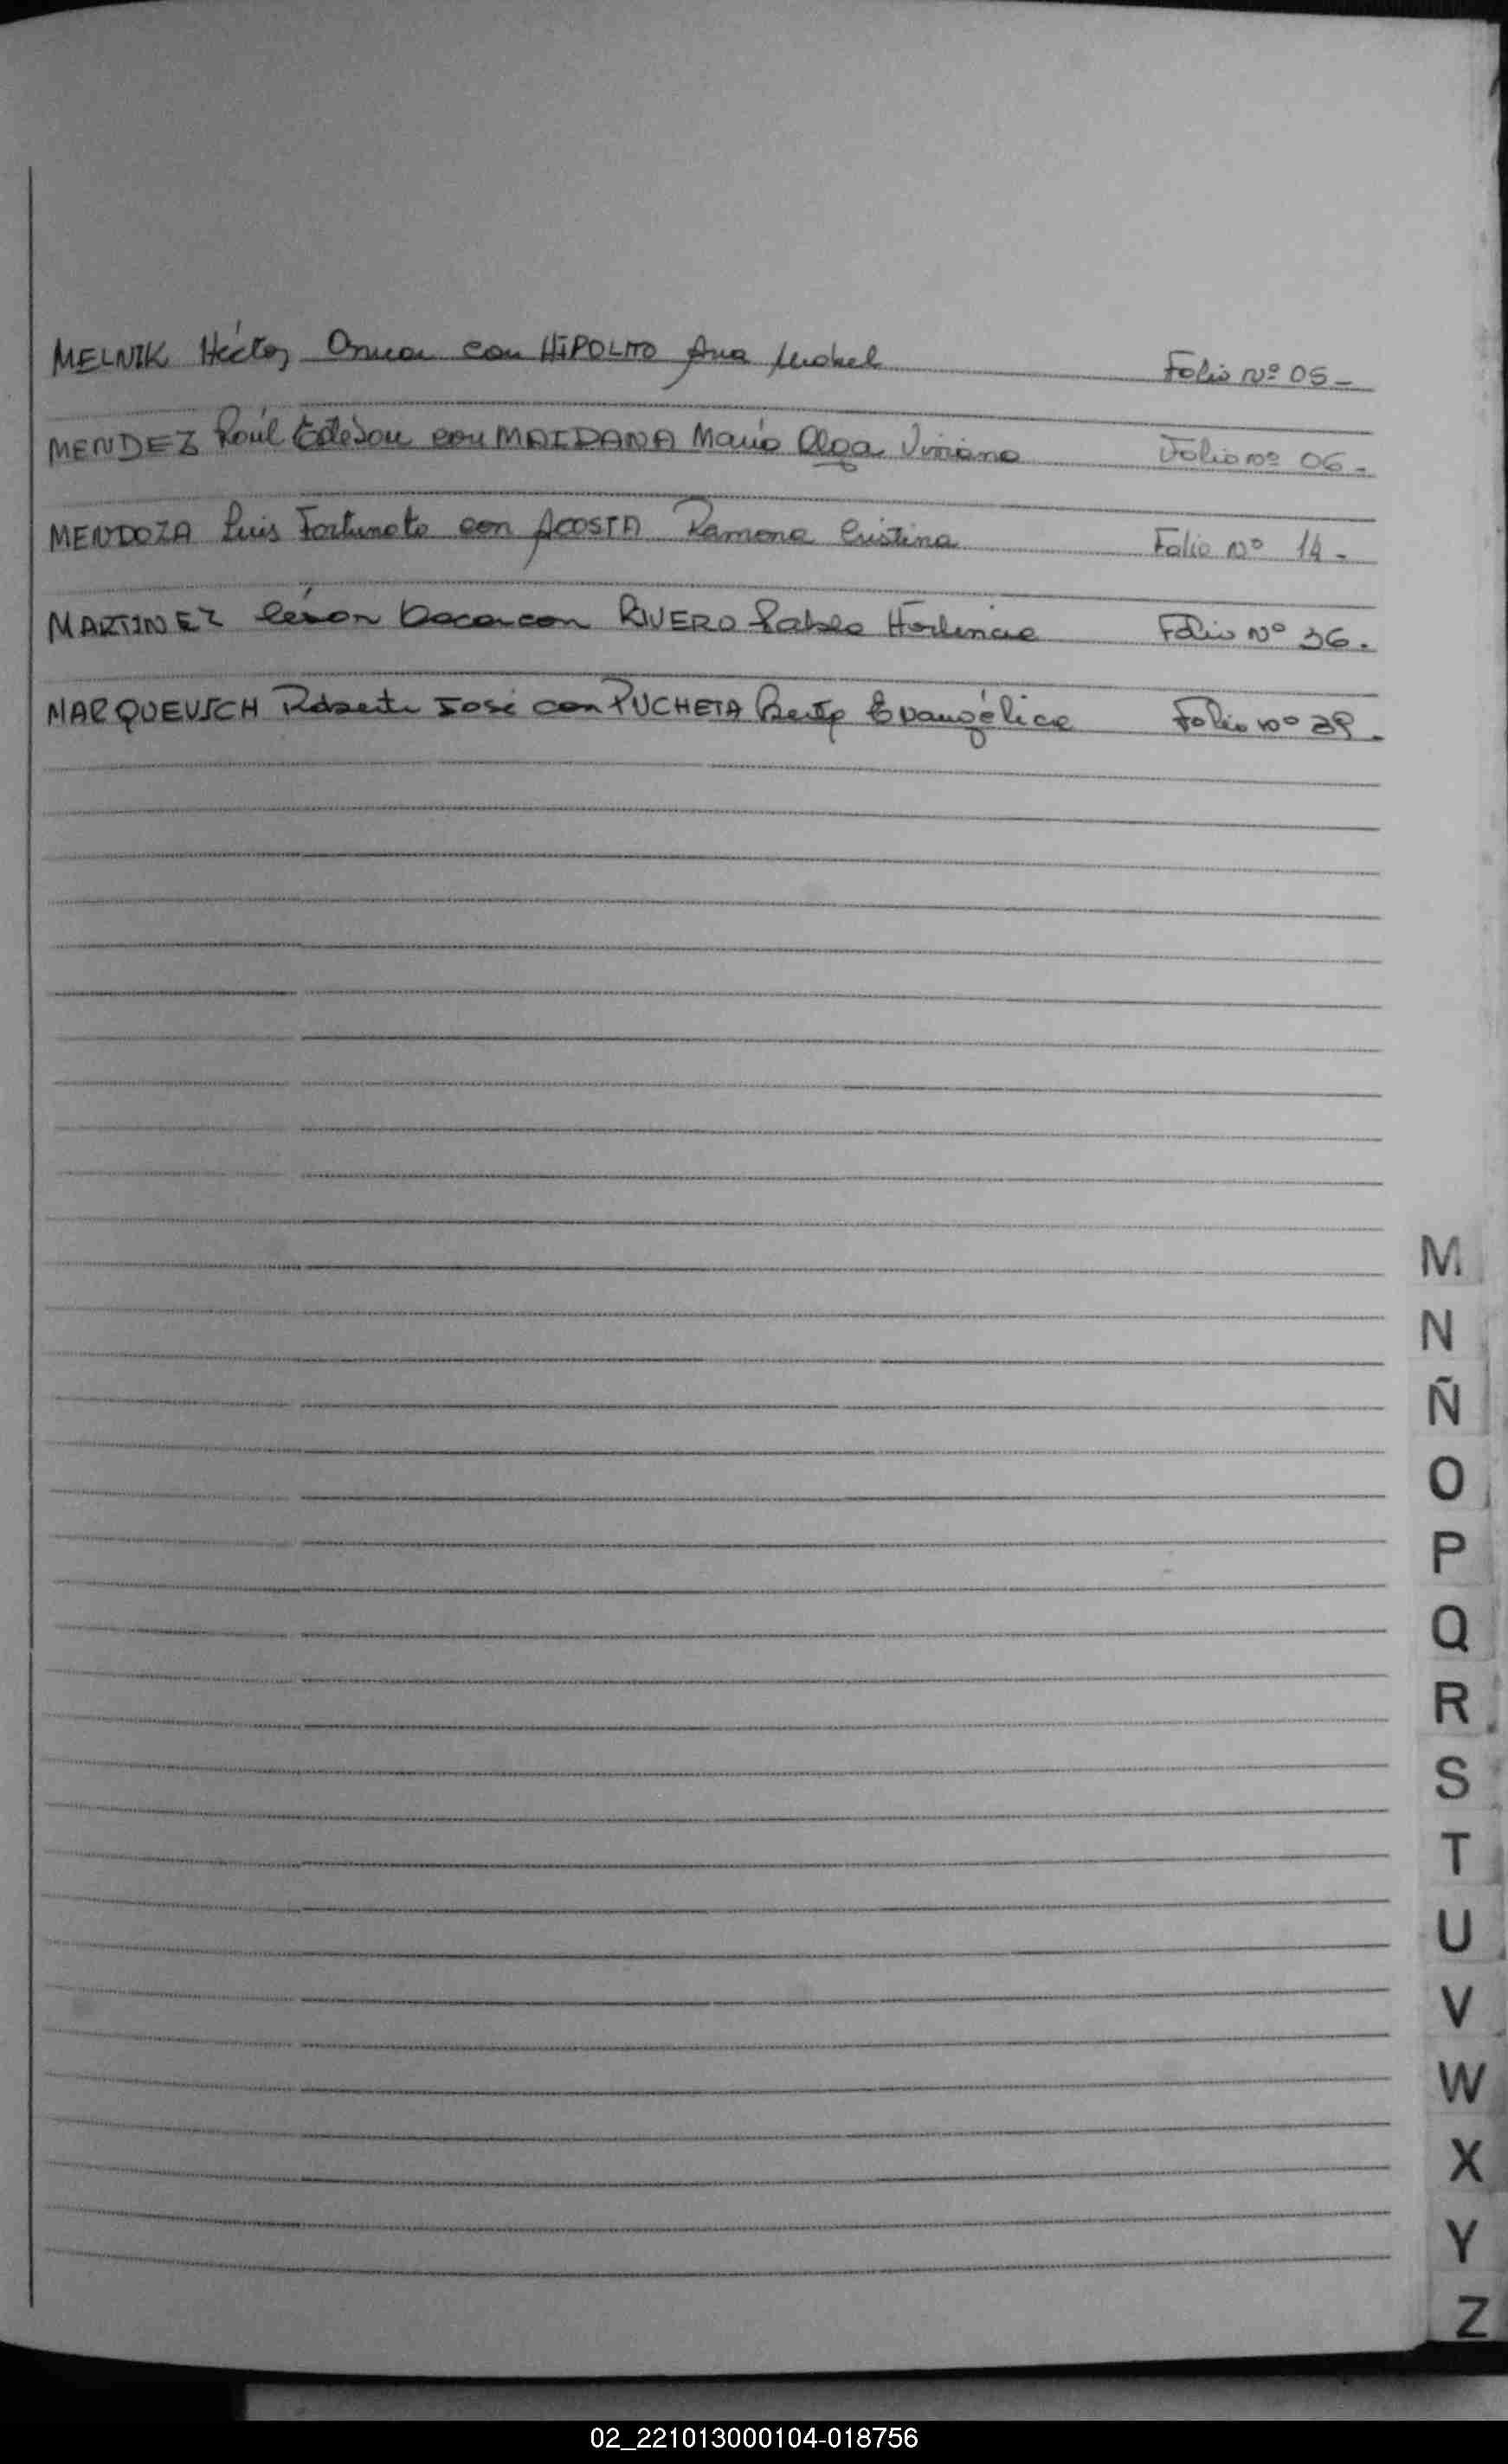 MELNIK Héctor Omar con HIPOLITO Ana Mabel Folio Nº 05-
MENDEZ Raúl Esteban con MAIDANA María Olga Viviana Folio nº 06-
MENDOZA Luis Fortunato con ACOSTA Ramona Cristina Folio Nº 14-
MARTINEZ con RIVERO Hortencia Folio Nº 36.
MARQUEVICH Roberto José con PUCHETA Evangélica Folio nº 39.
M
N
Ñ
O
P
Q
R
S
T
U
V
W
X
Y
Z
02_221013000104-018756